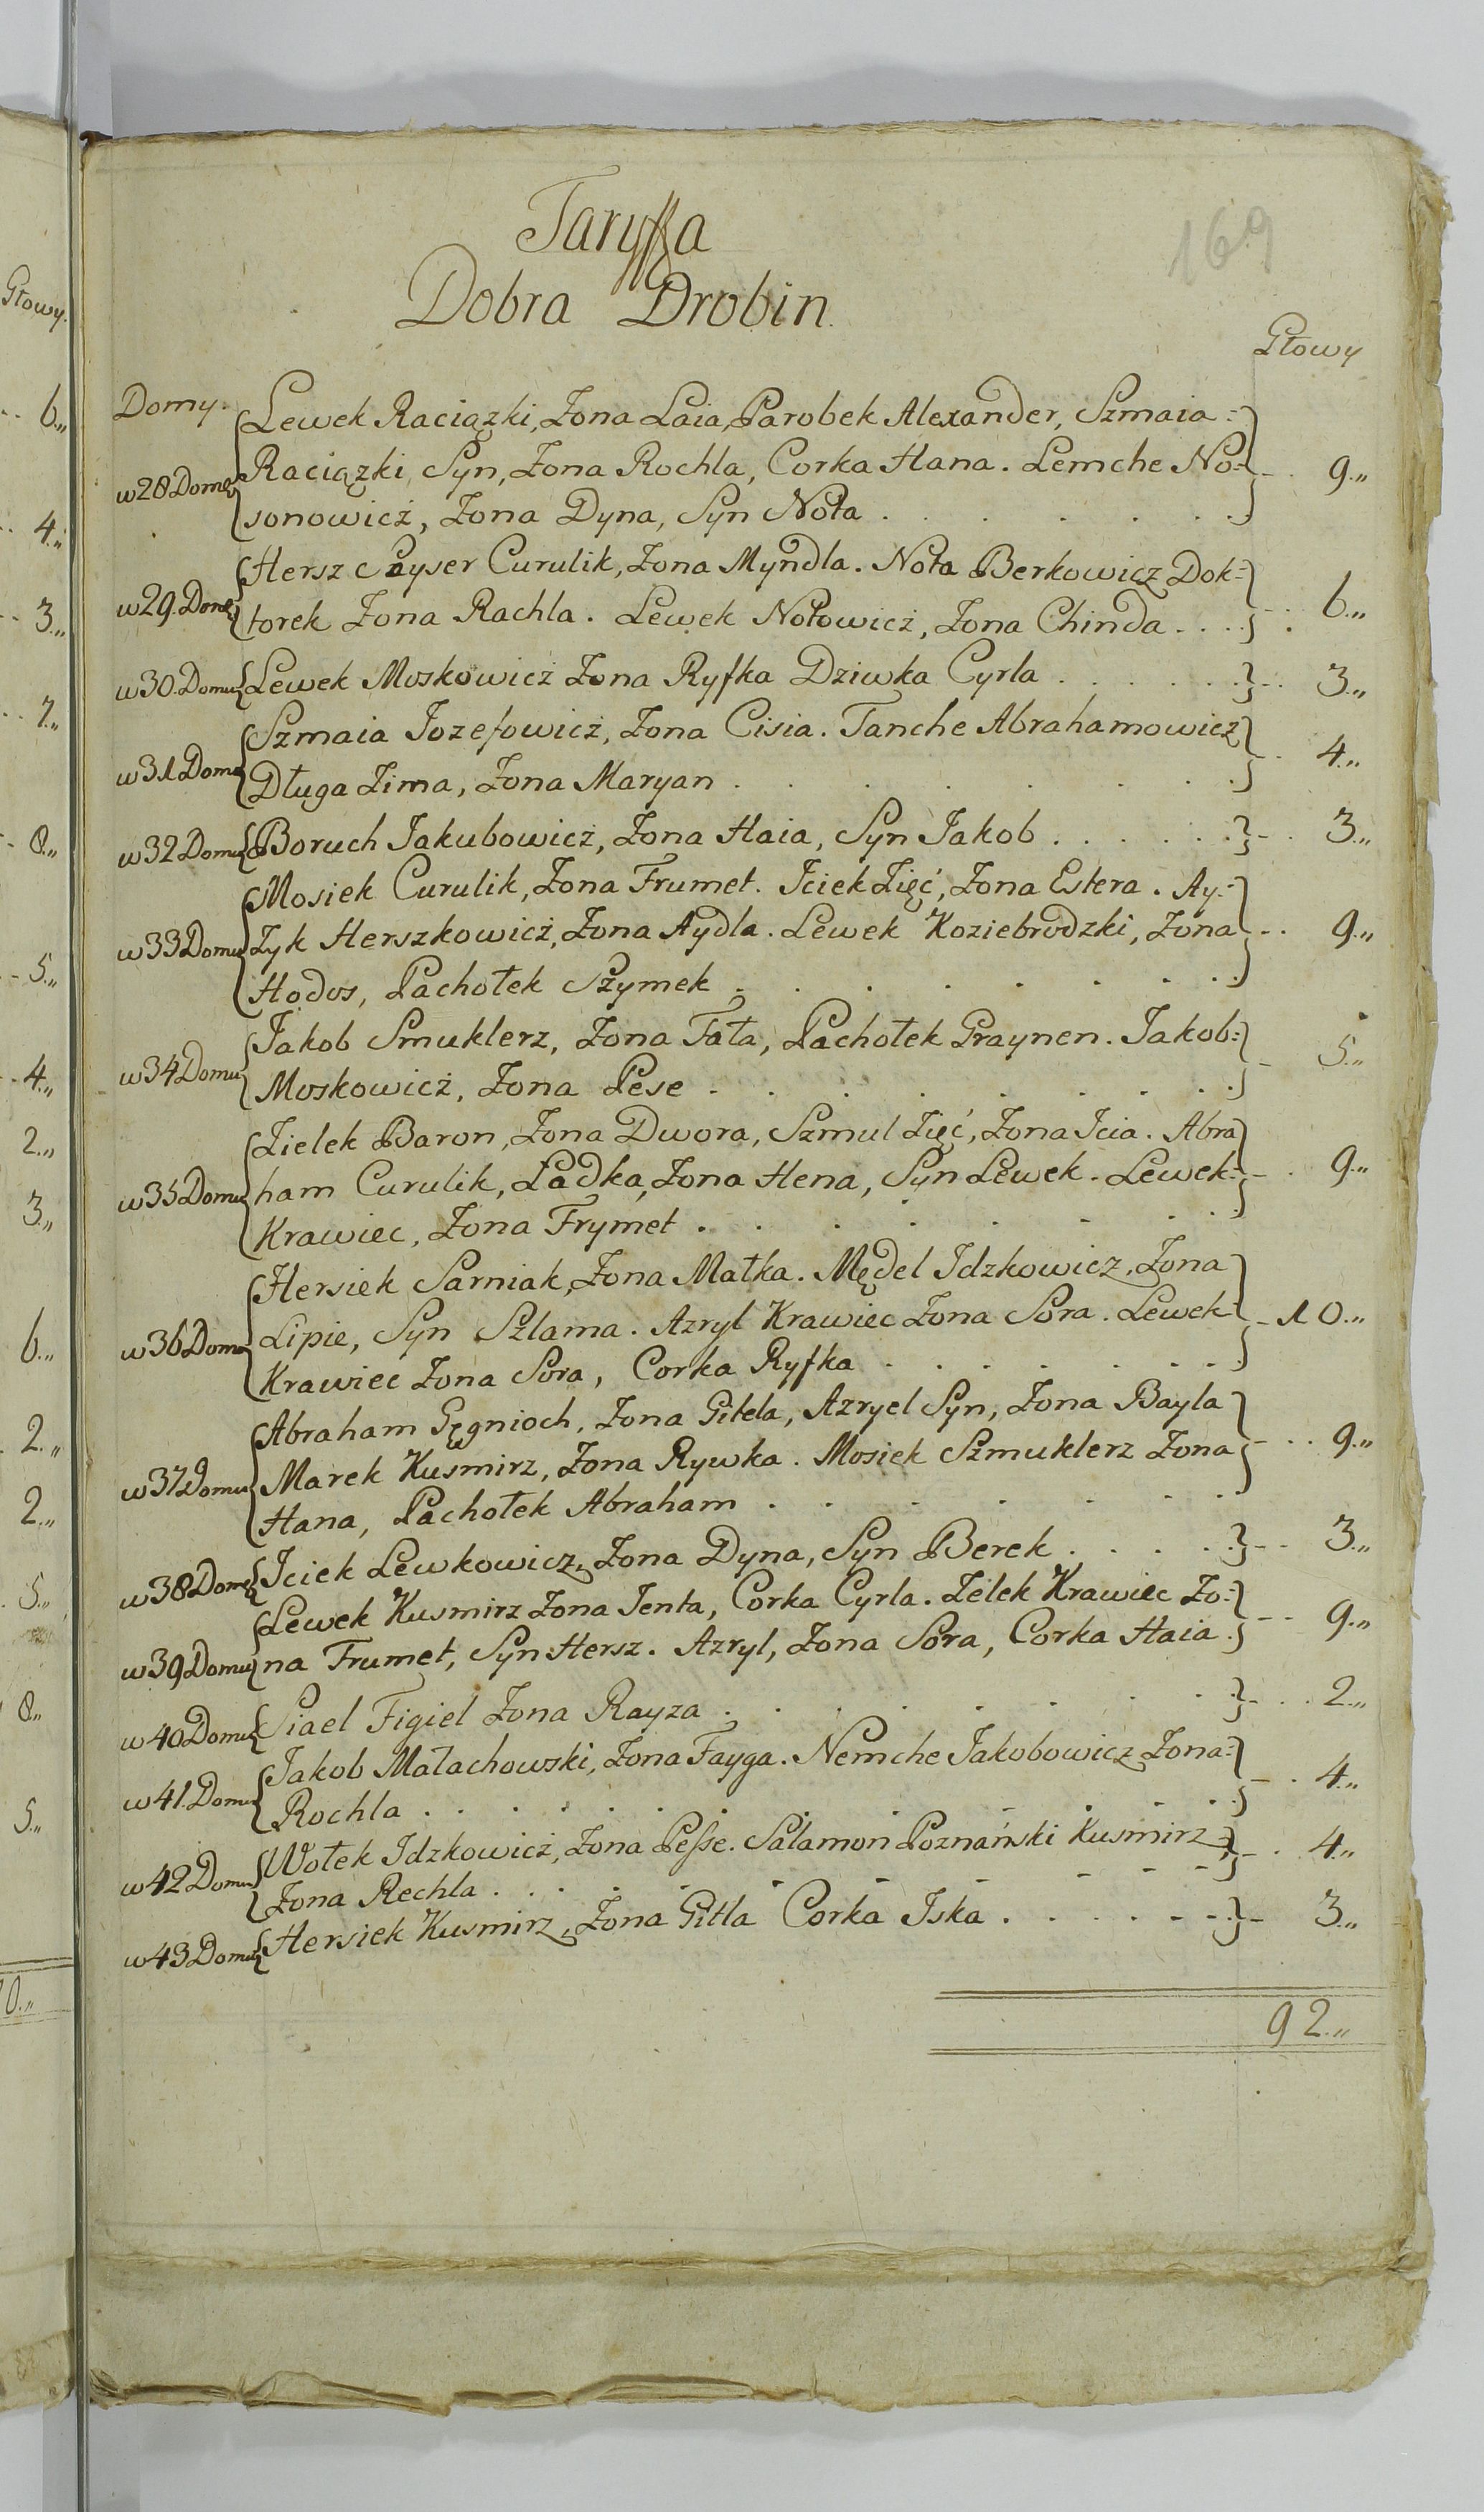 169
Taryffa
Dobra Drobin
Głowy
Domy.
w 28 Domu Lewek Raciązki, Zona Laia, Parobek Alexander, Szmaia =
Raciązki Syn, Zona Rochla, Corka Hana. Lemche No= 9.,,
sonowicż, Zona Dyna, Syn Nota
w 29. Domu Hersz Cayser Curulik, Zona Myndla. Nota Berkowicz Dok=
torek Zona Rachla. Lewek Notowicż, Zona Chinda 6.,,
w 30. Domu Lewek Moskowicż Zona Ryfka Dziwka Cyrla 3.,,
w 31 Domu Szmaia Jozefowicż, Zona Cisia. Tanche Abrahamowicz
Długa Zima, Zona Maryan 4.,,
w 32 Domu Boruch Jakubowicż, Zona Haia, Syn Jakob 3.,,
w 33 Domu Mosiek Curulik, Zona Frumet. Jciek Zięć, Zona Estera. Ay=
Zyk Herszkowicż, Zona Aydla. Lewek Koziebrodzki, Zona 9.,,
Hodos, Pachołek Szymek
w 34 Domu Jakob Smuklerz, Zona Fata, Pachołek Praynen. Jakob=
Moskowicż, Zona Pese 5.,,
w 35 Domu Zielek Baron, Zona Dwora, Szmul Zięć, Zona Jcia. Abra
ham Curulik, Ladka, Zona Hena, Syn Lewek. Lewek= 9.,,
Krawiec, Zona Frymet
w 36 Domu Hersiek Sarniak, Zona Matka. Mędel Jdzkowicz, Zona
Lipie, Syn Szlama. Azryl Krawiec Zona Sora. Lewek= 10.,,
Krawiec Zona Sora, Corka Ryfka
w 37 Domu Abraham Gęgnioch, Zona Gitela, Azryel Syn, Zona Bayla
Marek Kusmirz, Zona Rywka. Mosiek Szmuklerz Zona 9.,,
Hana, Pachołek Abraham
w 38 Domu Jciek Lewkowicz, Zona Dyna, Syn Berek 3.,,
w 39 Domu Lewek Kusmirz Zona Jenta, Corka Cyrla. Zelek Krawiec Zo=
na Frumet, Syn Hersz. Azryl, Zona Sora, Corka Haia 9.,,
w 40 Domu Siael Figiel Zona Rayza 2.,,
w 41. Domu Jakob Małachowski, Zona Fayga. Nemche Jakobowicz Zona=
Rochla 4.,,
w 42 Domu Wołek Jdzkowicż, Zona Pesse. Salamon Poznański Kusmirz
Zona Rechla 4.,,
w 43 Domu Hersiek Kusmirz, Zona Gitla Corka Jska 3.,,
92.,,